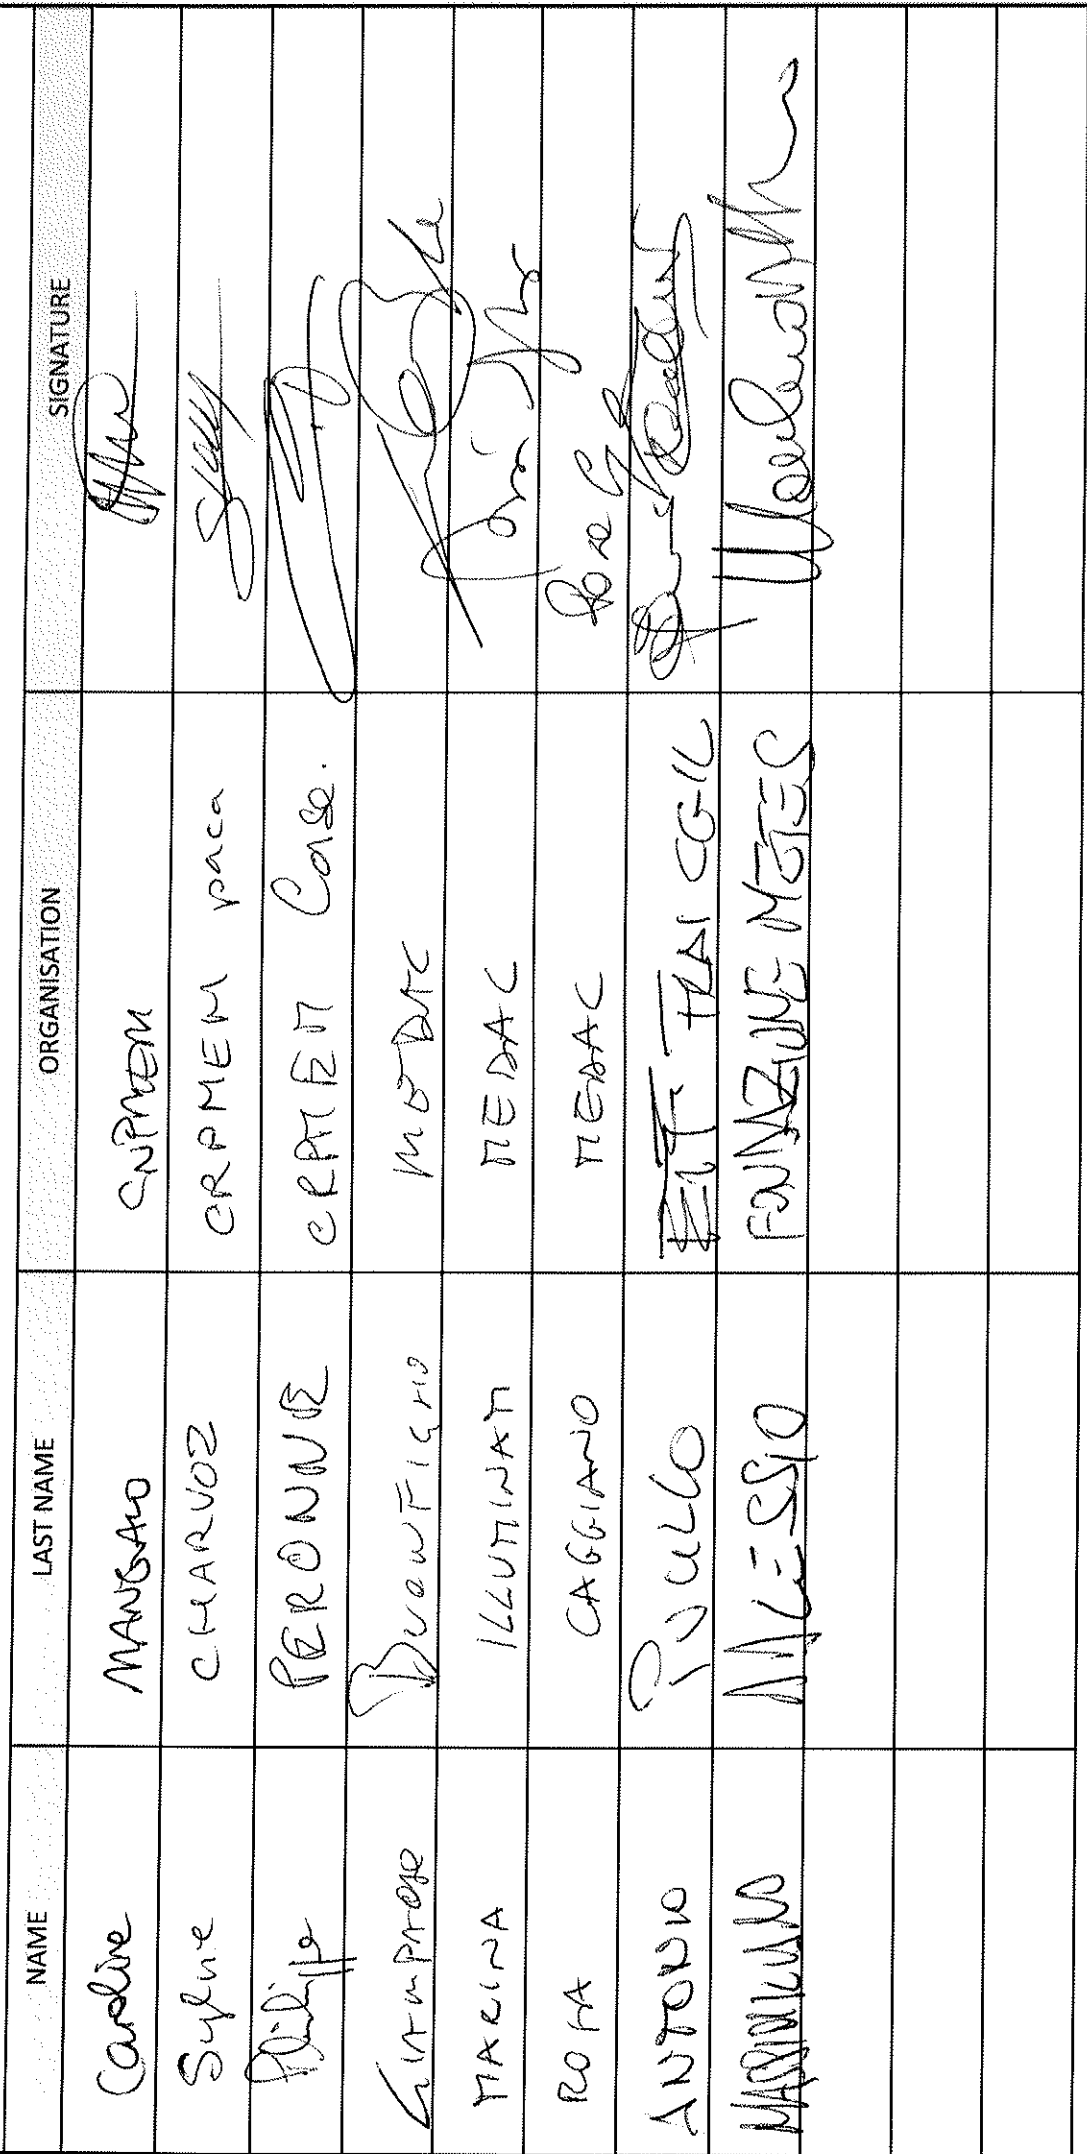 NAME LAST NAME ORGANISATION SIGNATURE
Caroline MANGALO CNPMEM
Sylvie CHARVOZ CRPMEM paca
Philippe PERONNE CRPMEM Corse.
GIAMPAOLO BUONFIGLIO MEDAC
MARINA ILLUMINATI MEDAC
ROSA CAGGIANO MEDAC Rosa
ANTONIO PUCILLO ETF FLAI CGIL
ALESSIO FONDAZIONE METES